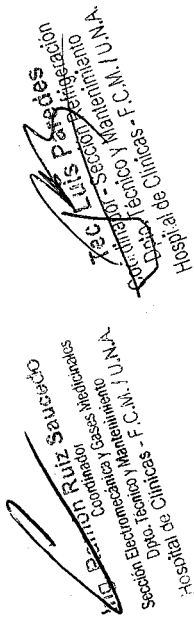 Ramón Ruiz Saucedo
Coordinador
Electromecánica y Gases Medicinales
Sección Electromecánica y Mantenimiento
Dpto. Técnico y Mantenimiento
Hospital de Clínicas - F.C.M. / U.N.A.
Tec. Luis Paredes
Coordinador - Sección Refrigeración
Dpto. Técnico y Mantenimiento
Hospital de Clínicas - F.C.M. / U.N.A.